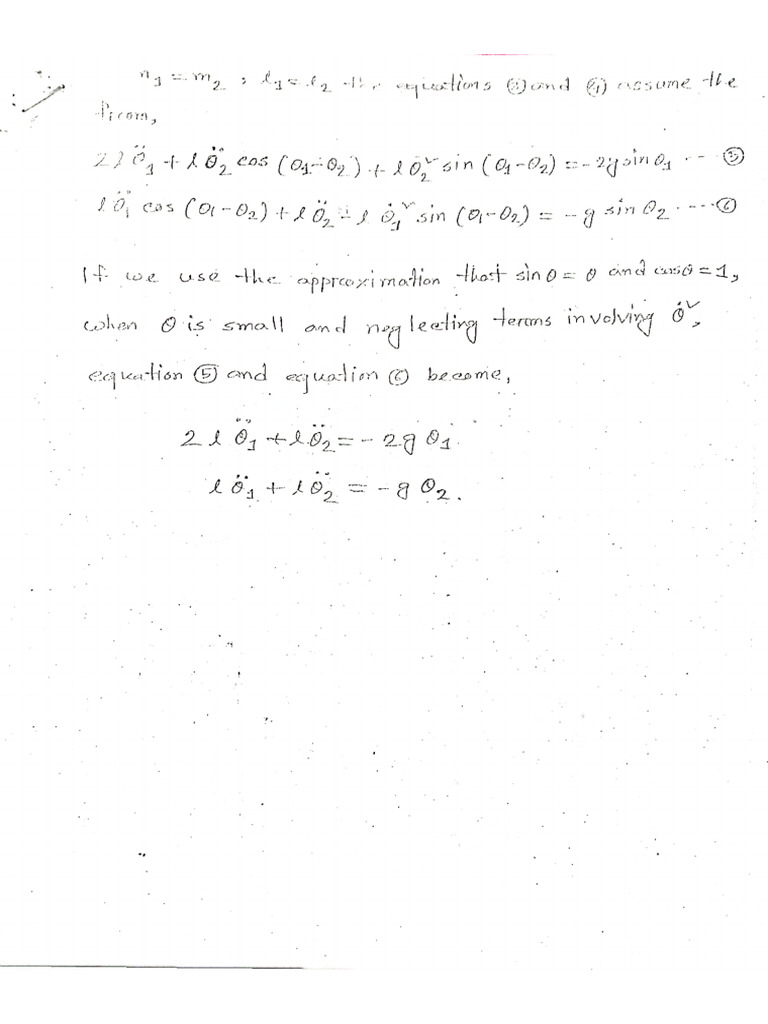 m₁ = m₂, l₁ = l₂ the equations ③ and ④ assume the
form,
2lθ̈₁ + lθ̈₂ cos (θ₁-θ₂) + lθ̇₂² sin (θ₁-θ₂) = -2g sinθ₁ ---- ⑤
lθ̈₁ cos (θ₁-θ₂) + lθ̈₂ - lθ̇₁² sin (θ₁-θ₂) = -g sin θ₂ ---- ⑥
If we use the approximation that sin θ = θ and cosθ = 1,
when θ is small and neglecting terms involving θ̇²,
equation ⑤ and equation ⑥ become,
2lθ̈₁ + lθ̈₂ = -2gθ₁
lθ̈₁ + lθ̈₂ = -gθ₂.